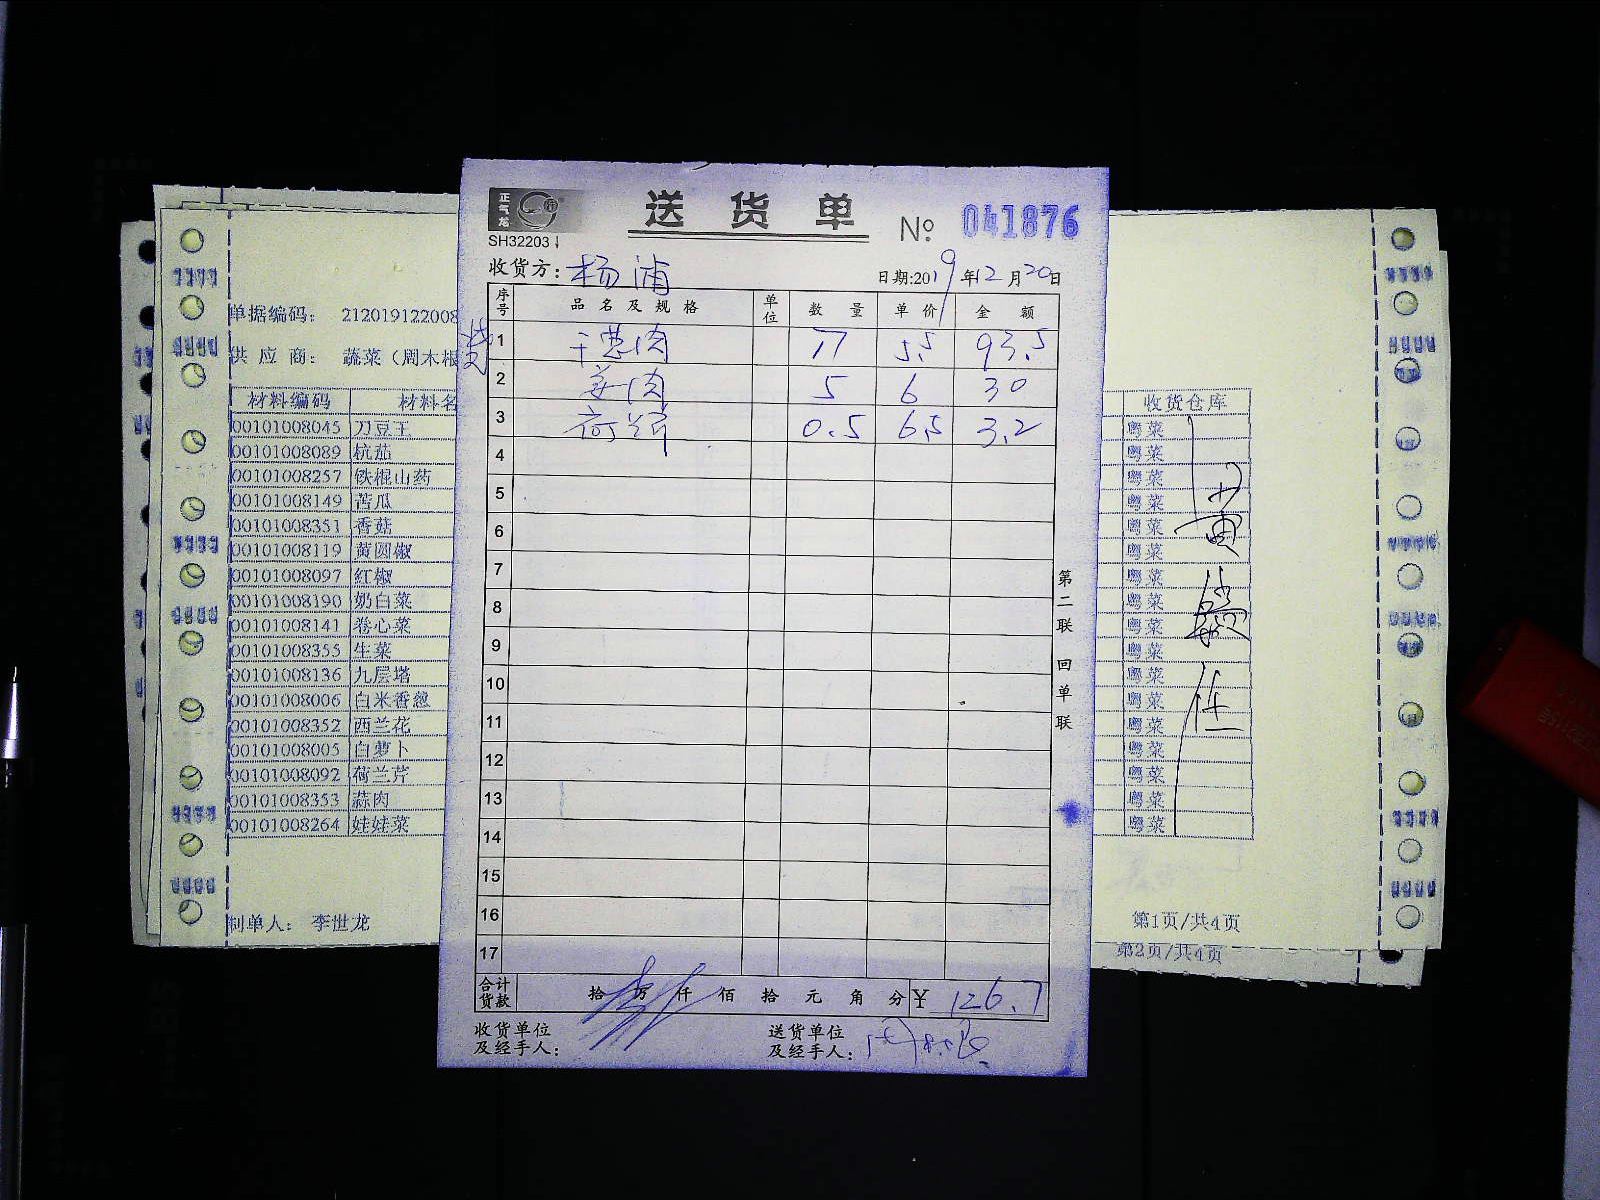 正气龙
送货单
SH32203
№ 041876
收货方: 杨浦
日期:2019年12月20日
序号 品名及规格 单位 数量 单价 金额
1 干葱肉 17 5.5 93.5
2 姜肉 5 6 30
3 荷兰芹 0.5 6.5 3.2
4
5
6
7
8
9
10
11
12
13
14
15
16
17
合计货款 拾万仟佰拾元角分 ¥ 126.7
收货单位及经手人:
送货单位及经手人:
第二联 回单联
单据编码: 212019122008
供应商: 蔬菜（周木根
材料编码 材料名 收货仓库
00101008045 刀豆王 粤菜
00101008089 杭茄 粤菜
00101008257 铁棍山药 粤菜
00101008149 苦瓜 粤菜
00101008351 香菇 粤菜
00101008119 黄圆椒 粤菜
00101008097 红椒 粤菜
00101008190 奶白菜 粤菜
00101008141 卷心菜 粤菜
00101008355 生菜 粤菜
00101008136 九层塔 粤菜
00101008006 白米香葱 粤菜
00101008352 西兰花 粤菜
00101008005 白萝卜 粤菜
00101008092 荷兰芹 粤菜
00101008353 蒜肉 粤菜
00101008264 娃娃菜 粤菜
制单人: 李世龙
第1页/共4页
第2页/共4页